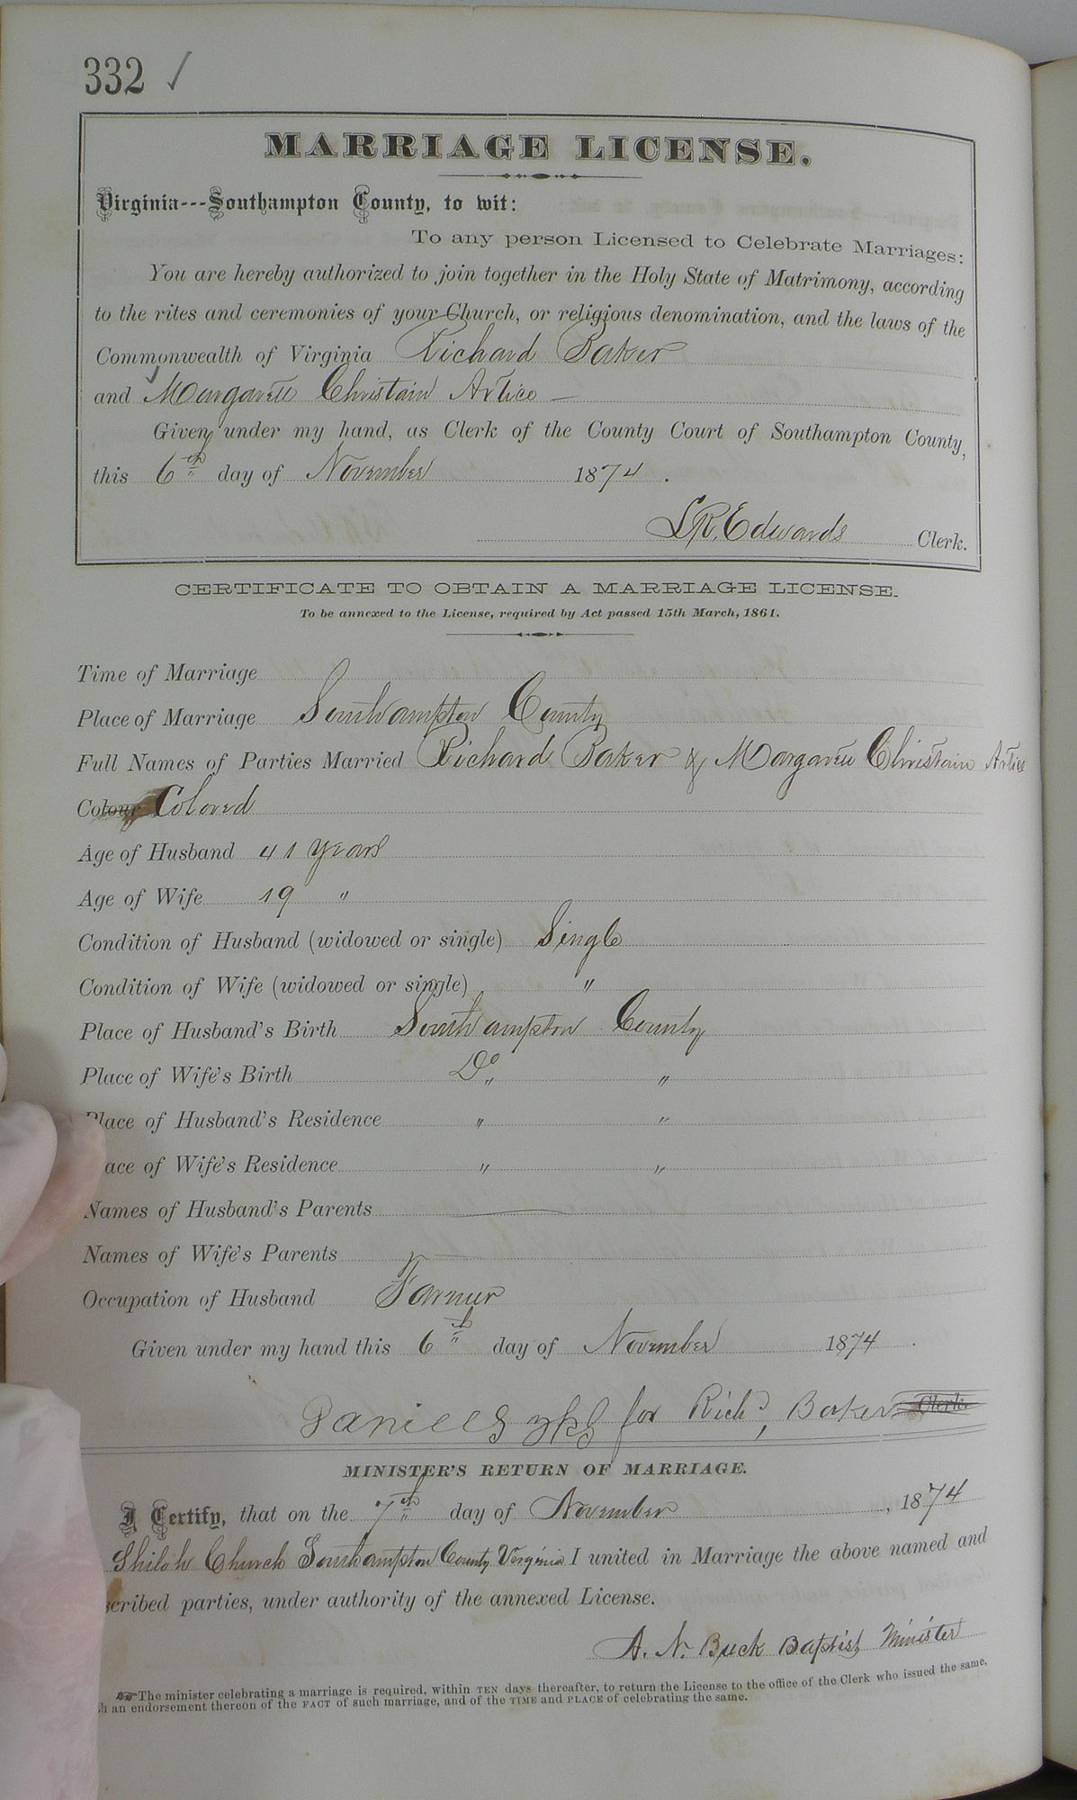 332 ✓
MARRIAGE LICENSE.
Virginia---Southampton County, to wit:
To any person Licensed to Celebrate Marriages:
You are hereby authorized to join together in the Holy State of Matrimony, according
to the rites and ceremonies of your Church, or religious denomination, and the laws of the
Commonwealth of Virginia Richard Baker
and Margarett Christain Artice
Given under my hand, as Clerk of the County Court of Southampton County,
this 6th day of November 1874.
L.R. Edwards Clerk.
CERTIFICATE TO OBTAIN A MARRIAGE LICENSE.
To be annexed to the License, required by Act passed 15th March, 1861.
Time of Marriage
Place of Marriage Southampton County
Full Names of Parties Married Richard Baker & Margarett Christain Artice
Colour Colored
Age of Husband 41 years
Age of Wife 19 "
Condition of Husband (widowed or single) Single
Condition of Wife (widowed or single) "
Place of Husband's Birth Southampton County
Place of Wife's Birth Do "
Place of Husband's Residence " "
ace of Wife's Residence " "
Names of Husband's Parents
Names of Wife's Parents
Occupation of Husband Farmer
Given under my hand this 6th day of November 1874.
for Richd, Baker Clerk
MINISTER'S RETURN OF MARRIAGE.
I Certify, that on the 7th day of November, 1874
Shiloh Church Southampton County Virginia I united in Marriage the above named and
scribed parties, under authority of the annexed License.
A. N. Buck Baptist Minister
☞The minister celebrating a marriage is required, within TEN days thereafter, to return the License to the office of the Clerk who issued the same,
h an endorsement thereon of the FACT of such marriage, and of the TIME and PLACE of celebrating the same.